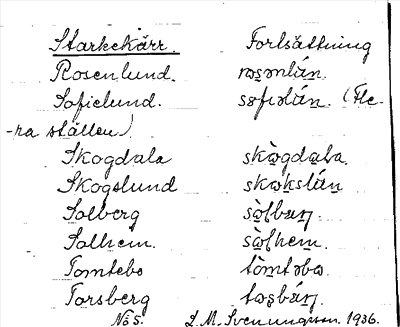 Starkekärr. Fortsättning
Rosenlund. rɷsənlán.
Sofielund. sɷfiəlán. (Fle-
-ra ställen)
Skogdala skɷ̀gdala.
Skogslund skɷkslán
Solberg sɷ̀lbærj
Solhem. sɷ̀lhem.
Tomtebo tòmtəbɷ
Torsberg tɷsbǽrj
No 5. L. M. Svenungsson 1936.